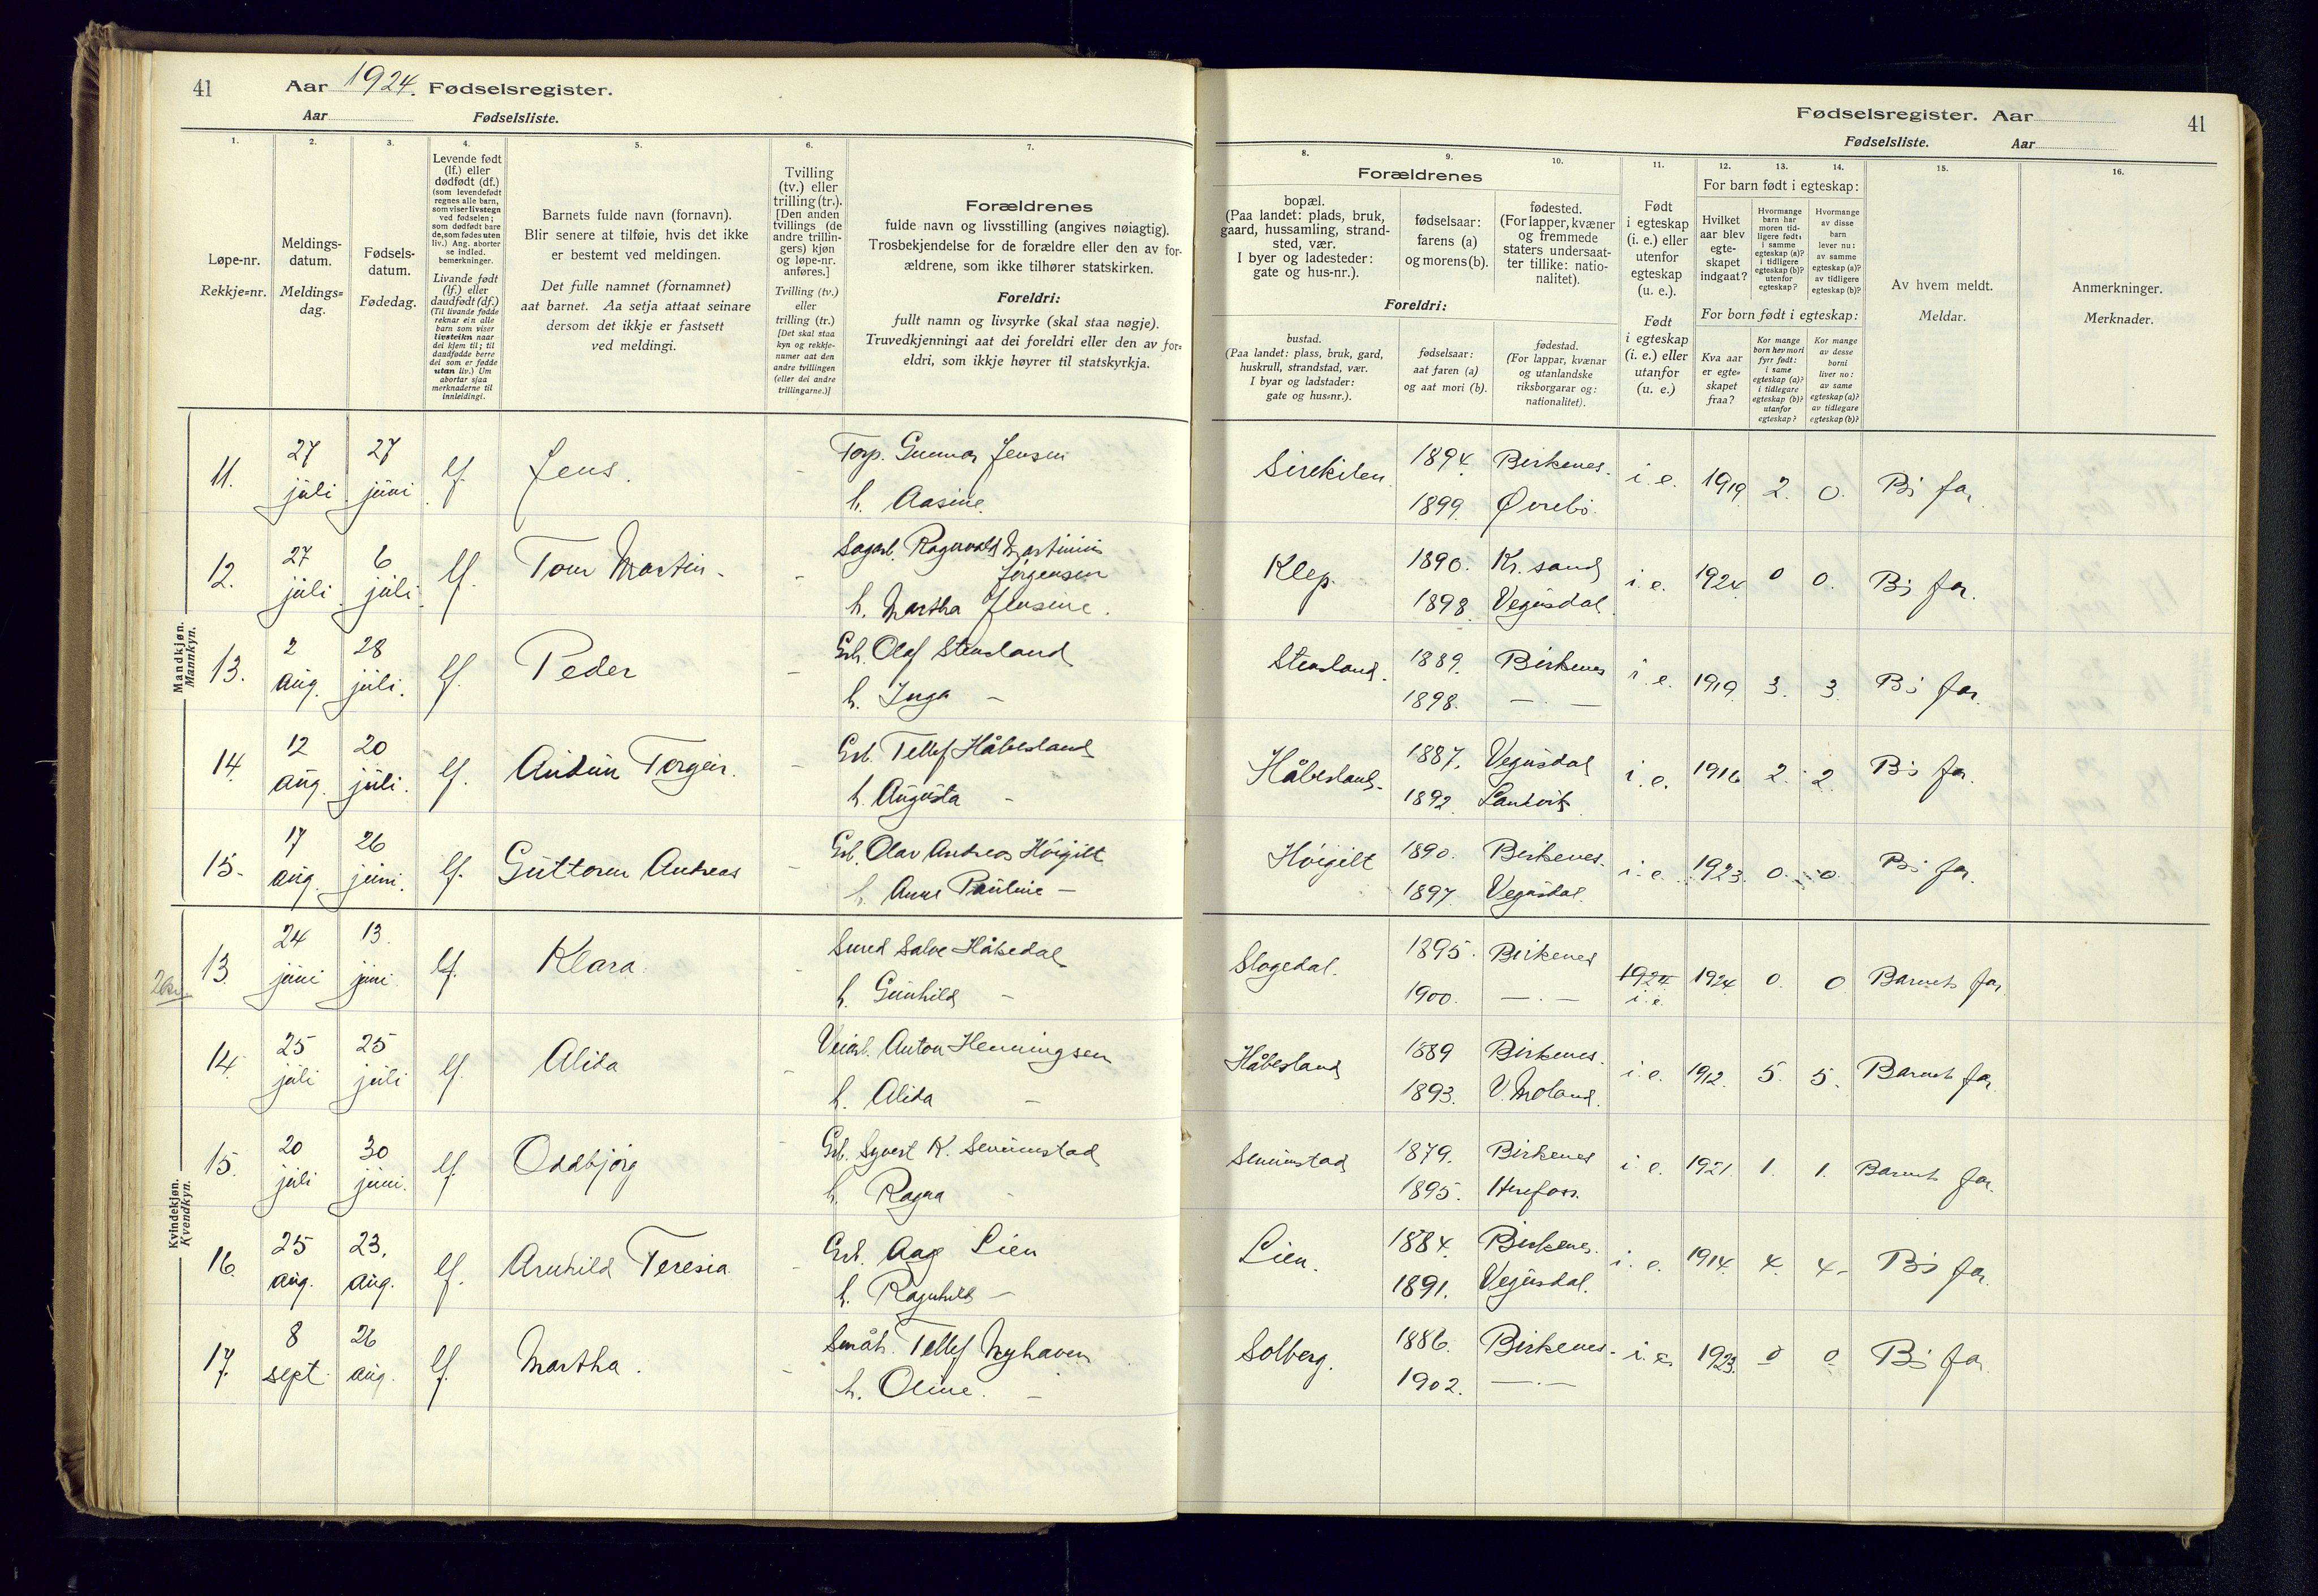 41
Aar 1924. Fødselsregister.
Aar Fødselsliste.
Fødselsregister. Aar
Fødselsliste. Aar
41
1.
Løpe-nr.
Rekkje=nr.
2.
Meldings-
datum.
Meldings=
dag.
3.
Fødsels-
datum.
Fødedag.
4.
Levende født
(lf.) eller
dødfødt (df.)
(som levendefødt
regnes alle barn,
som viser livstegn
ved fødselen;
som dødfødt bare
de, som fødes uten
liv.) Ang. aborter
se indled.
bemerkninger.
Livande født
(lf.) eller
daudfødt (df.)
(Til livande fødde
reknar ein alle
barn som viser
livsteikn naar
dei kjem til; til
daudfødde berre
dei som er fødde
utan liv.) Um
abortar sjaa
merknaderne til
innleidingi.
5.
Barnets fulde navn (fornavn).
Blir senere at tilføie, hvis det ikke
er bestemt ved meldingen.
Det fulle namnet (fornamnet)
aat barnet. Aa setja attaat seinare
dersom det ikkje er fastsett
ved meldingi.
6.
Tvilling
(tv.) eller
trilling (tr.).
[Den anden
tvillings (de
andre trillin-
gers) kjøn
og løpe-nr.
anføres.]
Tvilling (tv.)
eller
trilling (tr.)
[Det skal staa
kyn og rekkje-
numer aat den
andre tvillingen
(eller dei andre
trillingarne.)]
7.
Forældrenes
fulde navn og livsstilling (angives nøiagtig).
Trosbekjendelse for de forældre eller den av for-
ældrene, som ikke tilhører statskirken.
Foreldri:
fullt namn og livsyrke (skal staa nøgje).
Truvedkjenningi aat dei foreldri eller den av for=
eldri, som ikkje høyrer til statskyrkja.
Forældrenes
8.
bopæl.
(Paa landet: plads, bruk,
gaard, hussamling, strand-
sted, vær.
I byer og ladesteder:
gate og hus-nr.).
9.
fødselsaar:
farens (a)
og morens (b).
10.
fødested.
(For lapper, kvæner
og fremmede
staters undersaat-
ter tillike: natio-
nalitet).
Foreldri:
bustad.
(Paa landet: plass, bruk, gard,
huskrull, strandstad, vær.
I byar og ladstader:
gate og hus=nr.).
fødselsaar:
aat faren (a)
og aat mori (b).
fødestad.
(For lappar, kvænar
og utanlandske
riksborgarar og:
nationalitet).
11.
Født
i egteskap
(i. e.) eller
utenfor
egteskap
(u. e.).
Født
i egteskap
(i. e.) eller
utanfor
(u. e.)
12.
13.
14.
For barn født i egteskap:
Hvilket
aar blev
egte-
skapet
indgaat?
Hvormange
barn har
moren tid-
ligere født:
i samme
egteskap (a)?
i tidligere
egteskap (b)?
utenfor
egteskap?
Hvormange
av disse
barn
lever nu:
av samme
egteskap (a)?
av tidligere
egteskap (b)?
For born født i egteskap:
Kva aar
er egte=
skapet
fraa?
Kor mange
born hev mori
fyrr født:
i same
egteskap (a)?
i tidlegare
egteskap (b)?
utanfor
egteskap?
Kor mange
av desse
borni
liver no:
av same
egteskap (a)?
av tidlegare
egteskap (b)?
15.
Av hvem meldt.
Meldar.
16.
Anmerkninger.
Merknader.
Mandkjøn.
Mannkyn.
11. 27 juli 27 juni lf. Jens. - Torp. Gunnar Jensen
h. Aasine.
Sirekilen 1894. Birkenes. i. e. 1919 2. 0. B's far.
1899. Øvrebø.
12. 27 juli 6 juli lf. Tom Martin. - Sagarb. Ragnvald Martinius
Jörgensen
h. Martha Jensine.
Klep. 1890. Kr.sand i. e. 1924 0 0. B's far.
1898 Vegusdal.
13. 2 aug. 28 juli. lf. Peder - Grb. Olaf Stensland
h. Inga -
Stensland. 1889. Birkenes i. e. 1919 3. 3. B's far.
1898. — . —
14. 12 aug. 20 juli. lf. Audun Torgeir. - Grb. Tellef Håbesland
h. Augusta -
Håbesland. 1887. Vegusdal i. e. 1916 2. 2. B's far.
1892 Landvik
15. 17 aug. 26 juni. lf. Guttorm Andreas - Grb. Olav Andreas Höigilt
h. Anne Pauline -
Höigilt 1890. Birkenes. i. e. 1923. 0. 0. B's far.
1897. Vegusdal.
Kvindekjøn.
Kvendkyn.
13. 24 juni 13. juni lf. Klara. - Smed Salve Håbedal
h. Gunhild -
Slogedal. 1895. Birkenes 1924 1924 0. 0 Barnets far.
1900. — . — i. e.
14. 25 juli 25 juli lf. Alida - Veiarb. Anton Henningsen
h. Alida -
Håbesland 1889 Birkenes. i. e. 1912. 5. 5. Barnets far.
1893. V. Moland.
15. 20 juli 30 juni. lf. Oddbjörg - Grb. Syvert K. Senumstad
h. Ragna -
Senumstad 1879. Birkenes i. e. 1921. 1. 1. Barnets far.
1895. Herefoss.
16. 25 aug. 23. aug. lf. Arnhild Teresia. - Grb. Aag Lien
h. Ragnhild -
Lien. 1884. Birkenes. i. e. 1914. 4. 4. B's far.
1891. Vegusdal.
17. 8 sept. 26 aug. lf. Martha. - Småbr. Tellef Nyhaven
h. Oline. -
Solberg. 1886. Birkenes. i. e. 1923. 0 0 B's far.
1902. — . —